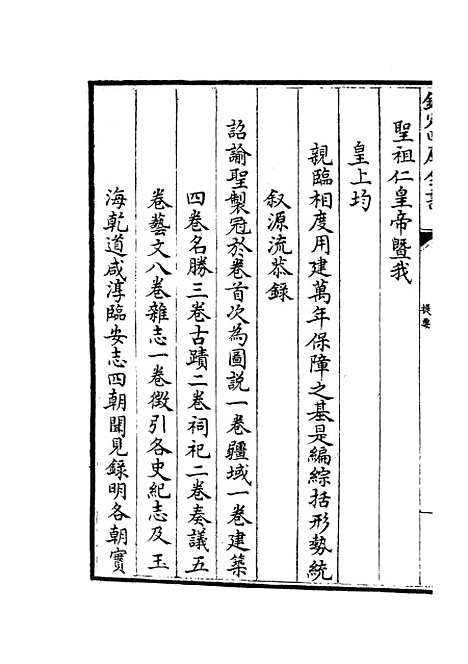 欽定四庫全書
提要
聖祖仁皇帝暨我
皇上均
親臨相度用建萬年保障之基是編綜括形勢統
叙源流恭錄
詔諭聖製冠於卷首次為圖說一卷疆域一卷建築
四卷名勝三卷古蹟二卷祠祀二卷奏議五
卷藝文八卷雜志一卷徵引各史紀志及玉
海乾道咸淳臨安志四朝聞見錄明各朝實